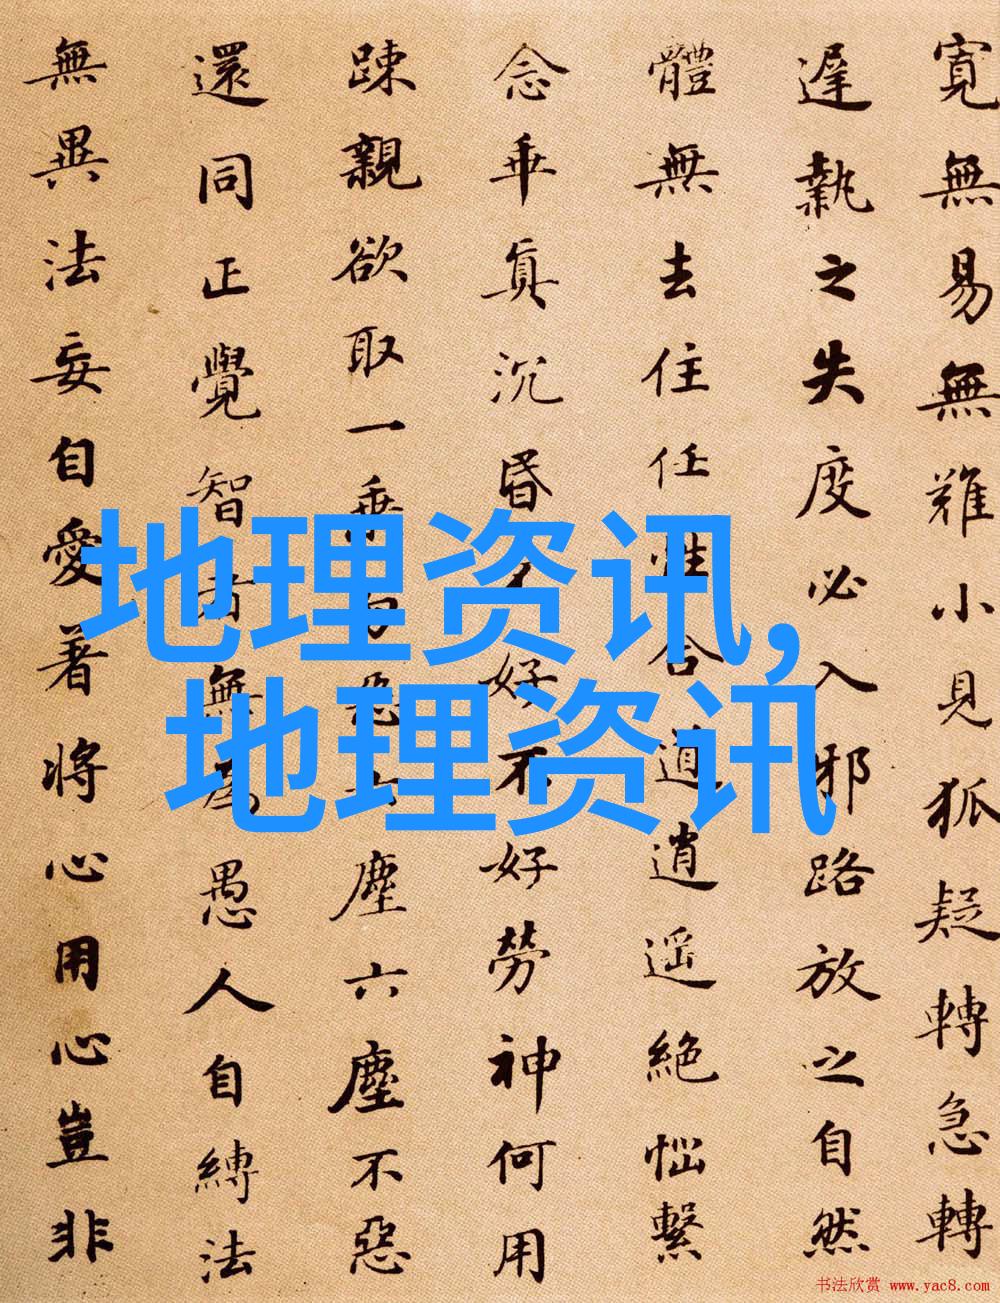 寬無易無難小見狐疑轉急轉
遲執之失度必入邪路放之自然
體無去住任性合道逍遥絶惱繫
念乖真沉昏不好不好勞神何用
踈親欲取一乘勿惡六塵六塵不惡
還同正覺智者無為愚人自縛法
無異法妄自愛著將心用心豈非
地理资讯,
地理资讯
书法欣赏 www.yac8.com